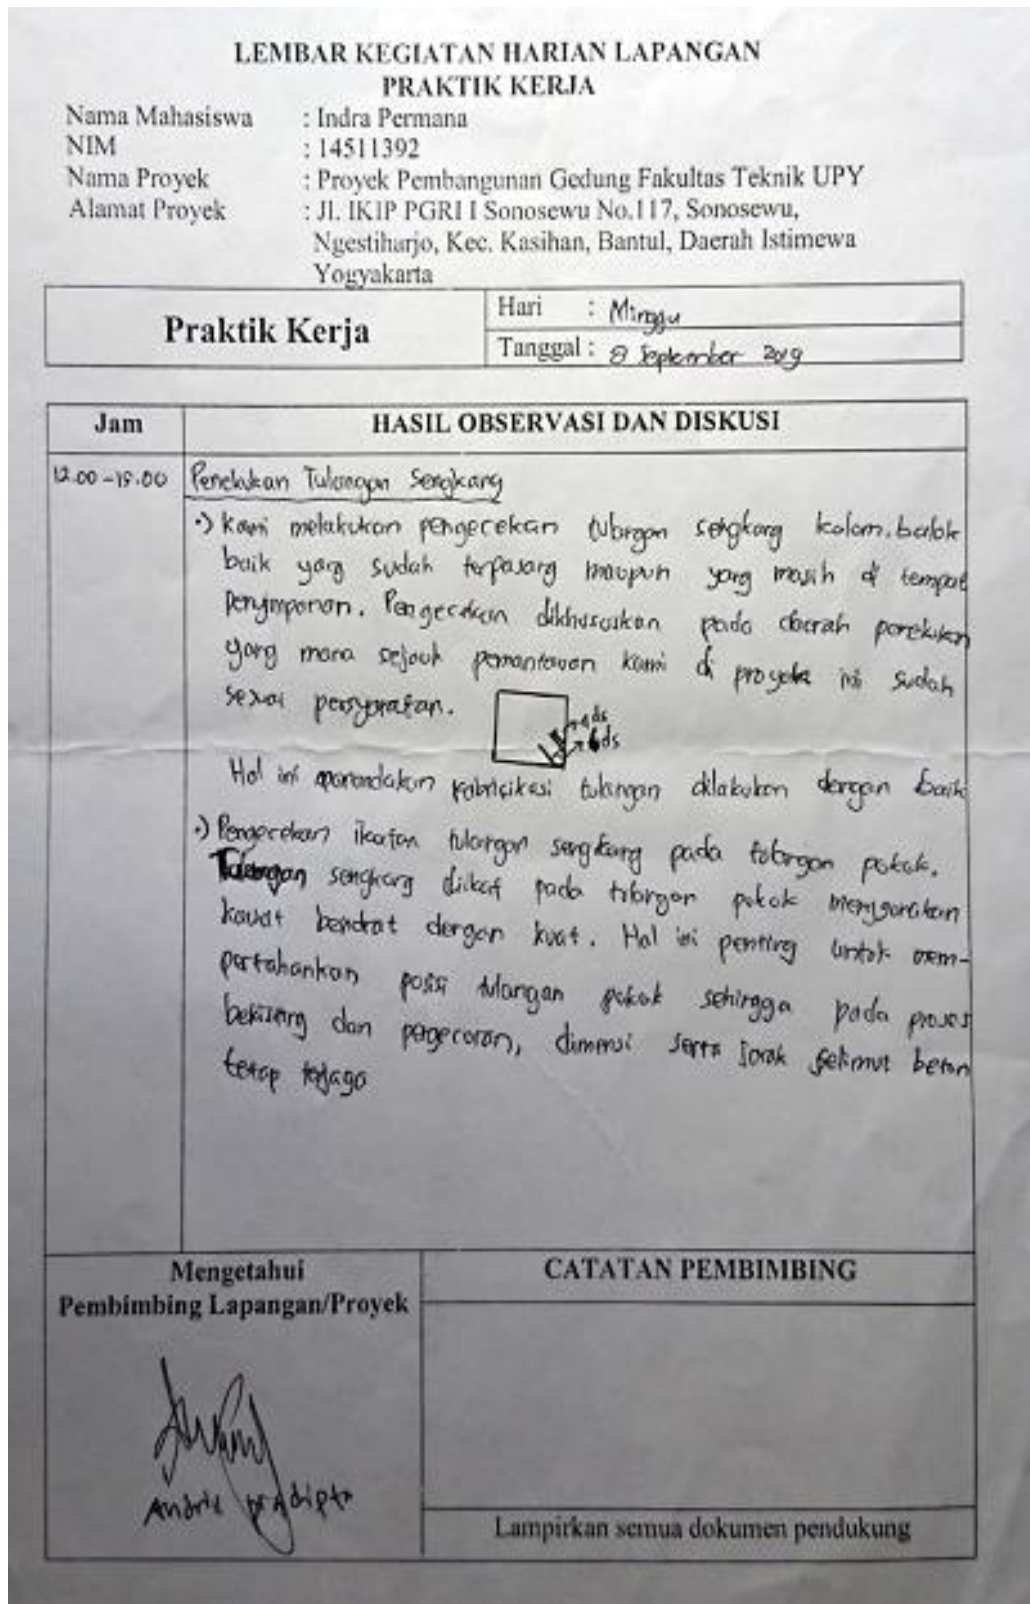 LEMBAR KEGIATAN HARIAN LAPANGAN
PRAKTIK KERJA
Nama Mahasiswa : Indra Permana
NIM : 14511392
Nama Proyek : Proyek Pembangunan Gedung Fakultas Teknik UPY
Alamat Proyek : Jl. IKIP PGRI I Sonosewu No.117, Sonosewu,
Ngestiharjo, Kec. Kasihan, Bantul, Daerah Istimewa
Yogyakarta
Praktik Kerja
Hari : Minggu
Tanggal : 8 September 2019
Jam HASIL OBSERVASI DAN DISKUSI
12.00 - 15.00 Penekukan Tulangan Sengkang
·) Kami melakukan pengecekan tulangan sengkang kolom, balok
baik yang sudah terpasang maupun yang masih di tempat
penyimpanan. Pengecekan dikhususkan pada daerah penekukan
yang mana sejauh pemantauan kami di proyek ini sudah
sesuai persyaratan.
ds
6ds
Hal ini menandakan fabrikasi tulangan dilakukan dengan baik
·) Pengecekan ikatan tulangan sengkang pada tulangan pokok.
Tulangan sengkang diikat pada tulangan pokok menggunakan
kawat bendrat dengan kuat. Hal ini penting untuk mem-
pertahankan posisi tulangan pokok sehingga pada proses
bekisting dan pegecoran, dimensi serta jarak selimut beton
tetap terjaga
Mengetahui
Pembimbing Lapangan/Proyek
Andrie pradipta
CATATAN PEMBIMBING
Lampirkan semua dokumen pendukung